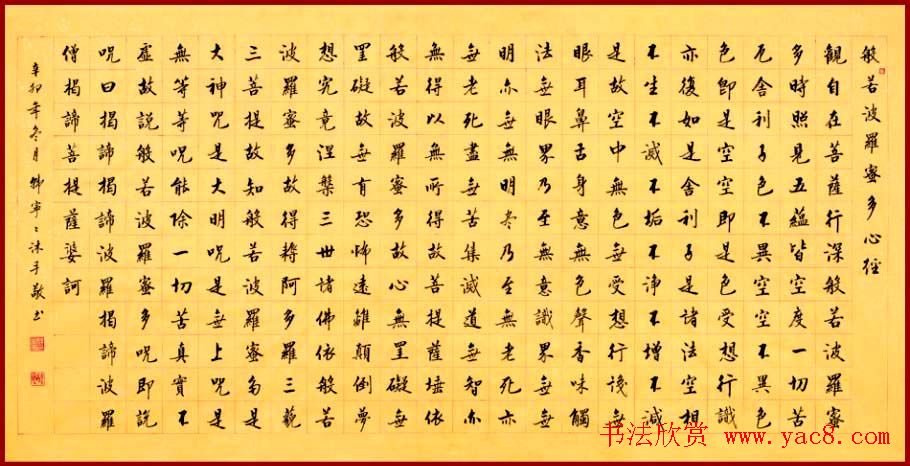 般若波羅蜜多心經
觀自在菩薩行深般若波羅蜜
多時照見五蘊皆空度一切苦
厄舍利子色不異空空不異色
色即是空空即是色受想行識
亦復如是舍利子是諸法空相
不生不滅不垢不淨不增不減
是故空中無色無受想行識無
眼耳鼻舌身意無色聲香味觸
法無眼界乃至無意識界無無
明亦無無明盡乃至無老死亦
無老死盡無苦集滅道無智亦
無得以無所得故菩提薩埵依
般若波羅蜜多故心無罣礙無
罣礙故無有恐怖遠離顛倒夢
想究竟涅槃三世諸佛依般若
波羅蜜多故得耨阿多羅三藐
三菩提故知般若波羅蜜多是
大神咒是大明咒是無上咒是
無等等咒能除一切苦真實不
虛故說般若波羅蜜多咒即說
咒曰揭諦揭諦波羅揭諦波羅
僧揭諦菩提薩婆訶
辛卯年冬月韓寧々沐手敬书
书法欣赏 www.yac8.com